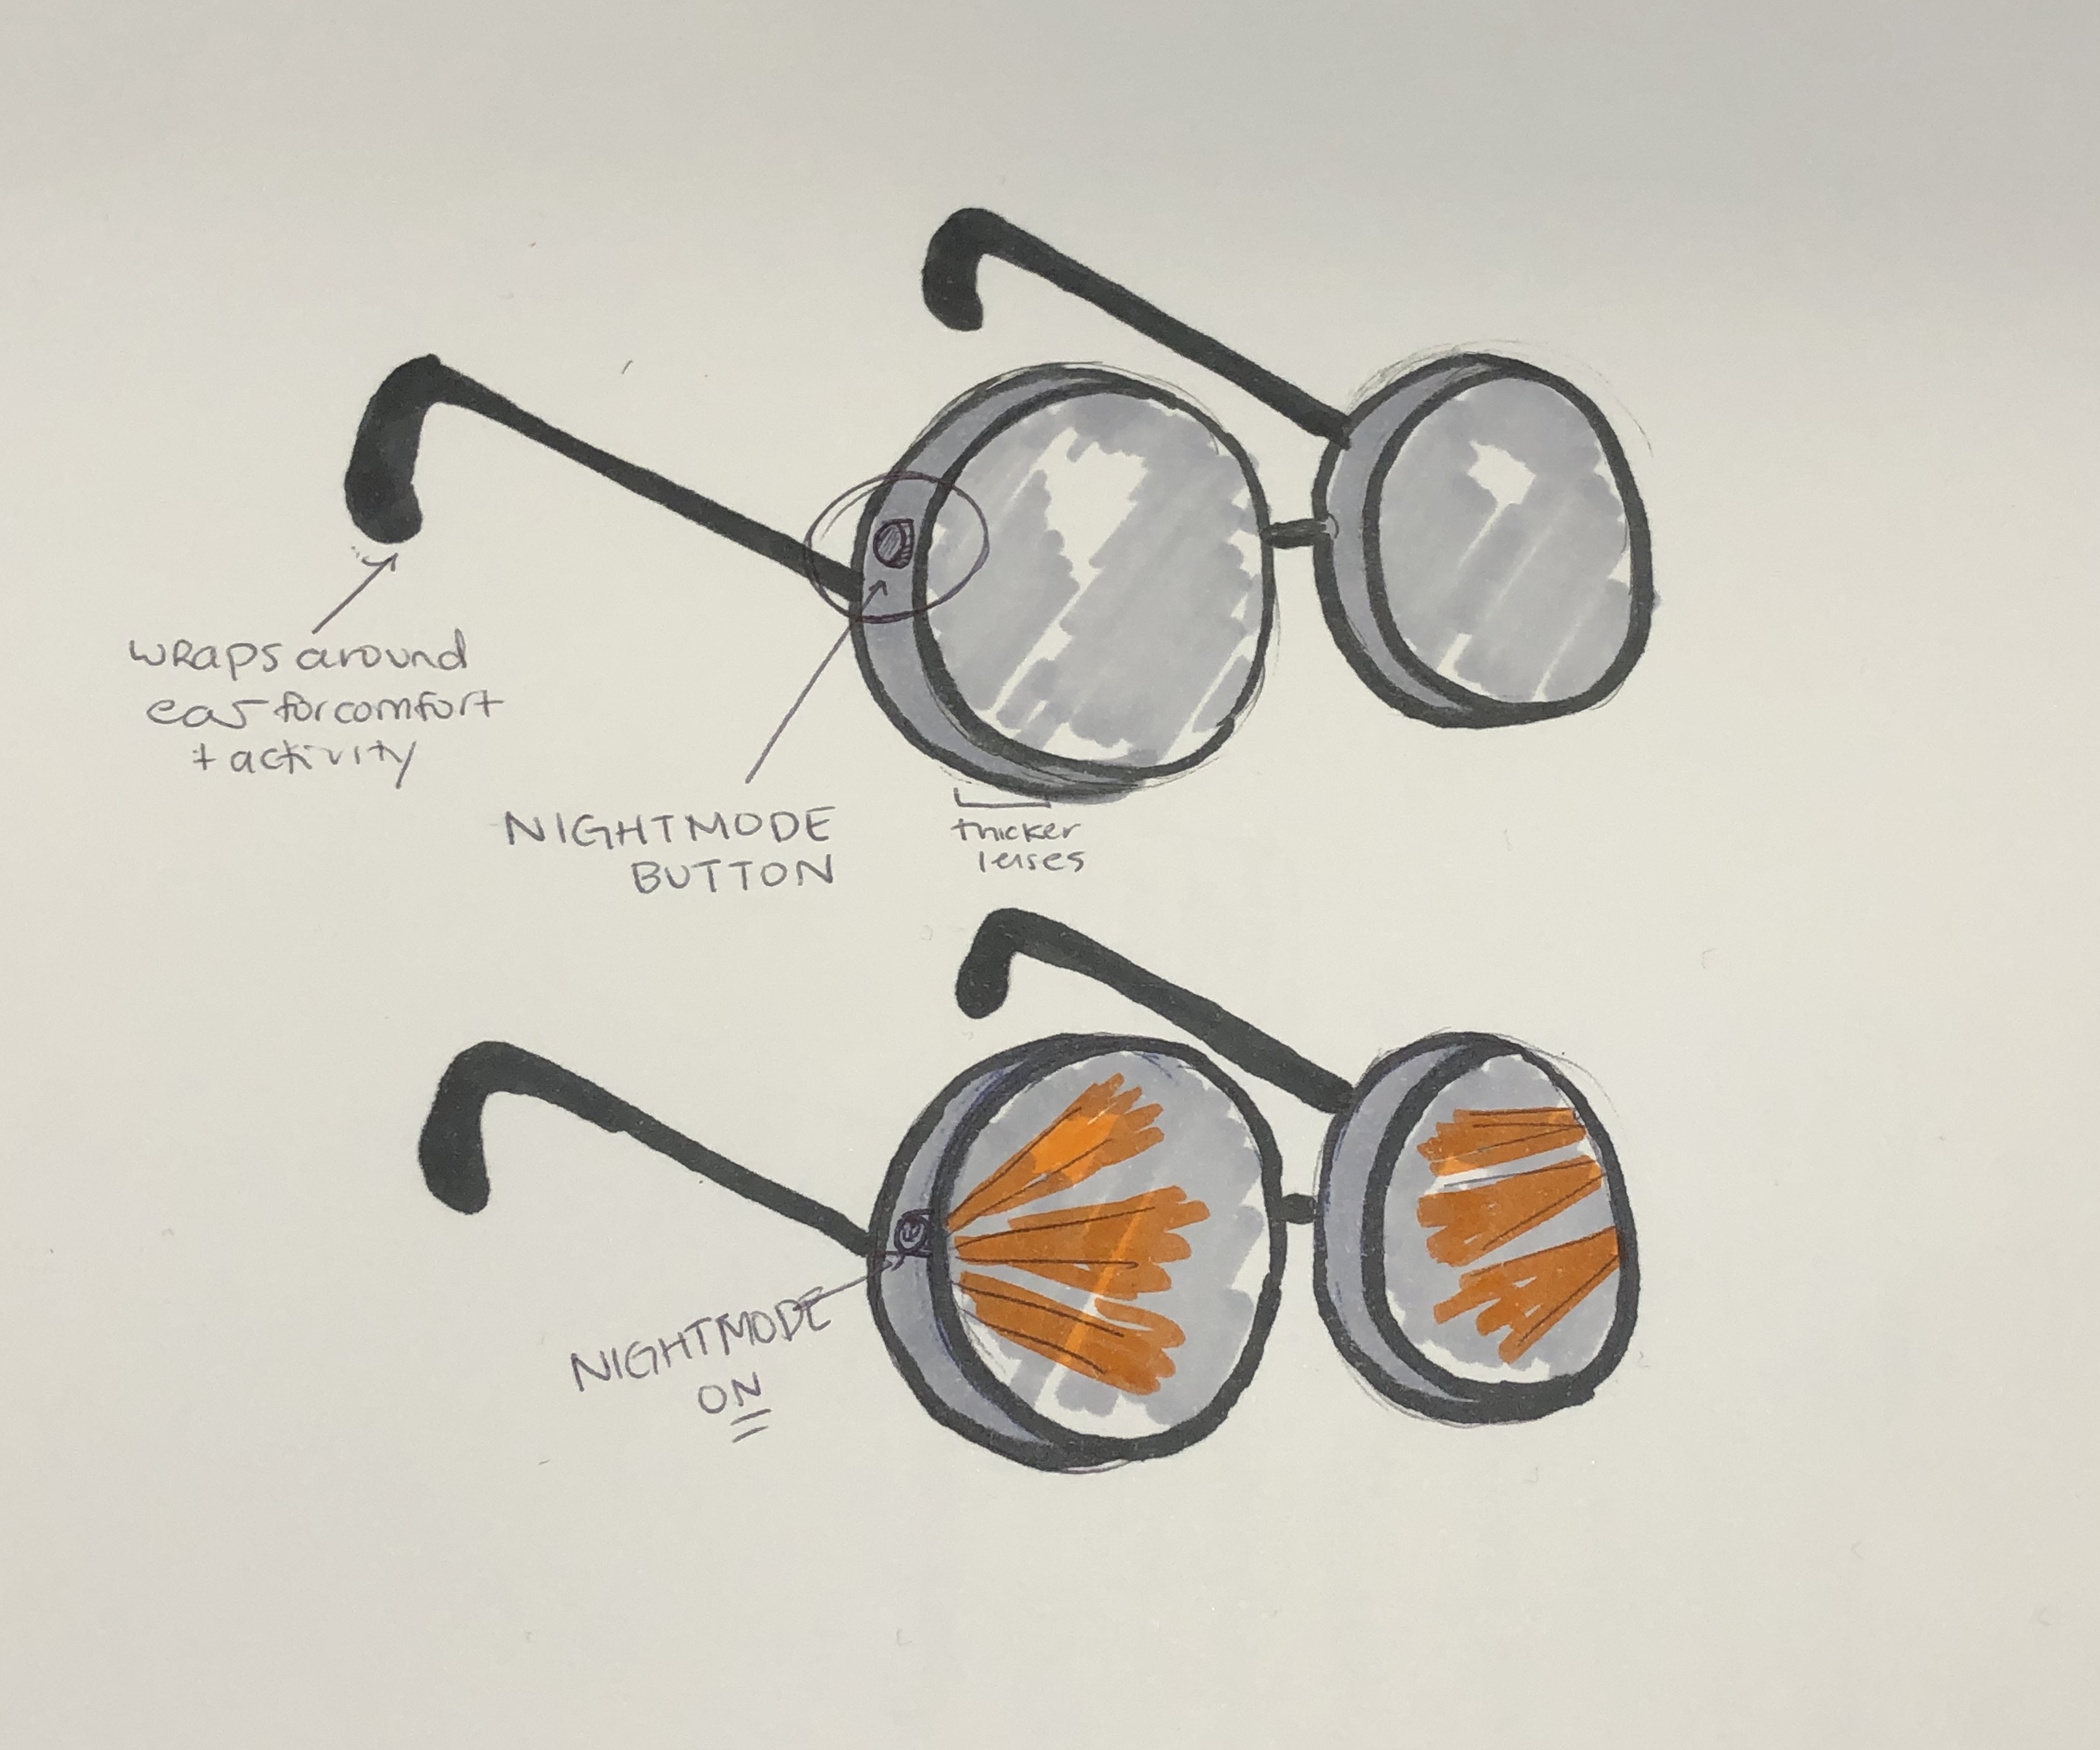 wraps around
ear for comfort
+ activity
NIGHTMODE
BUTTON
thicker
lenses
NIGHTMODE
ON